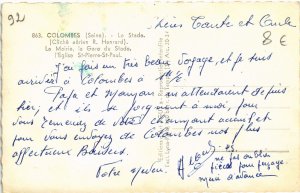 92
Chers Tante et Oncle
8€
863. COLOMBES (Seine). - Le Stade.
(Cliché aérien R. Henrard).
La Mairie, la Gare du Stade,
l'Eglise St-Pierre-St-Paul.
J'ai fait un très beau voyage, et je suis
arrivé à Colombes à
Papa et Maman m'attendaient depuis
hier, et ils se joignent à moi, pour
vous remercier de votre charmant accueil et
pour vous envoyer de Colombes nos plus
affectueux Baisers.
Votre neveu.
ne pas oublier
pièces pour
merci d'avance